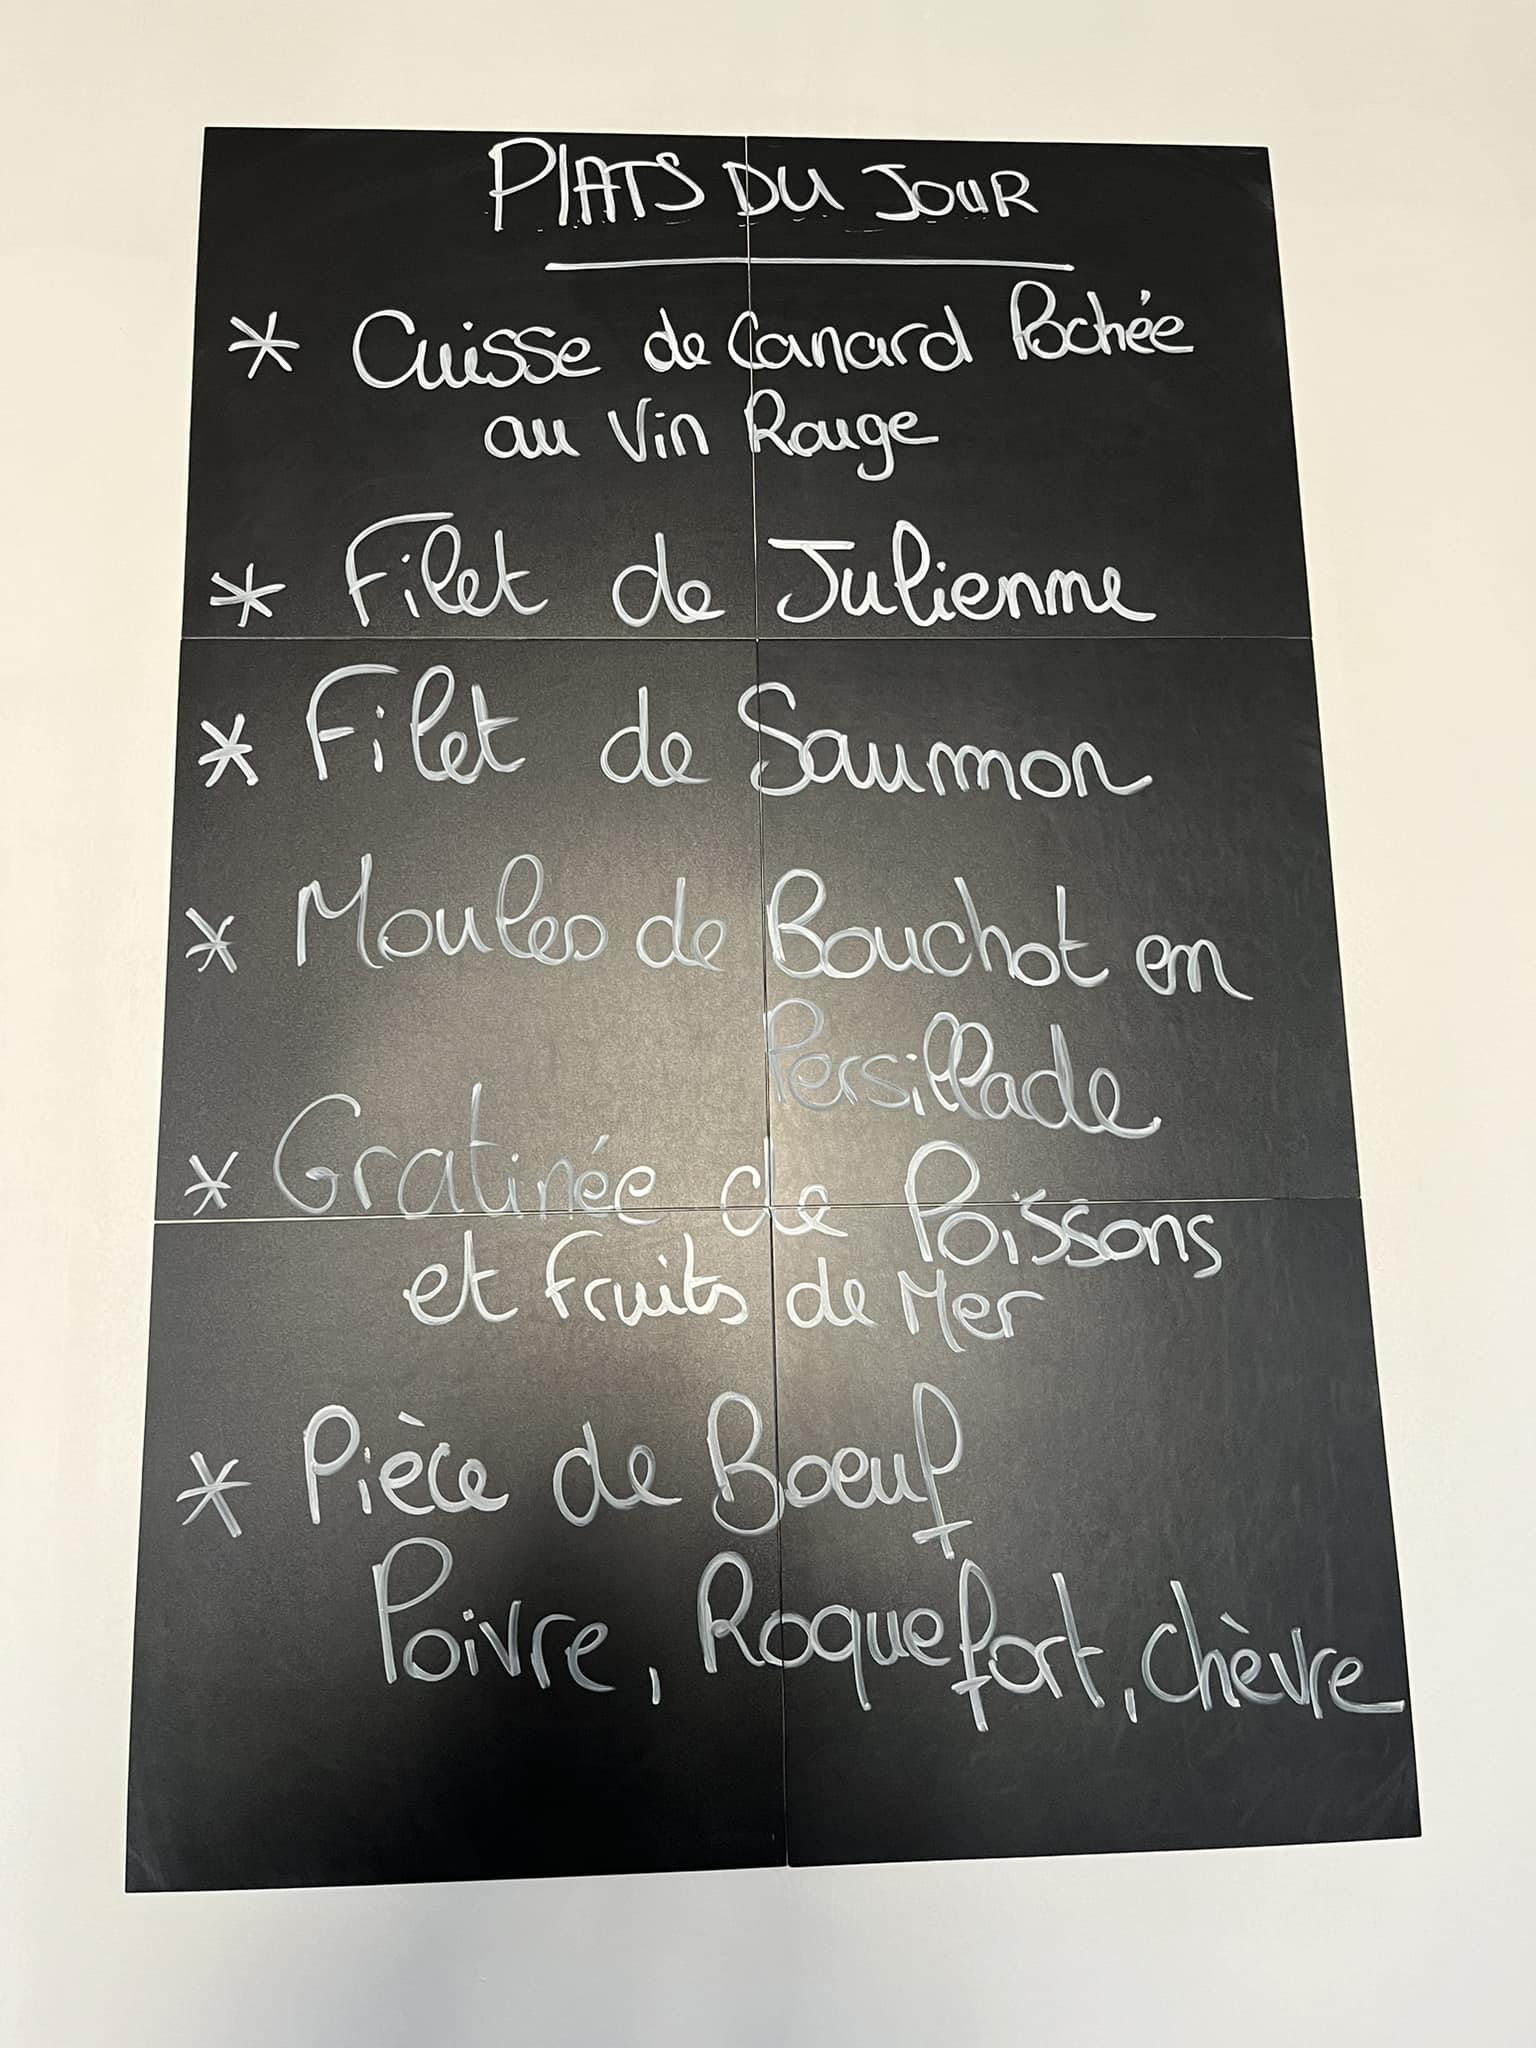 PlATS DU JOUR
* Cuisse de Canard Pochée
au Vin Rouge
* Filet de Julienne
* Filet de Saumon
* Moules de Bouchot en
Persillade
* Gratinée de Poissons
et Fruits de Mer
* Pièce de Boeuf
Poivre, Roquefort, Chèvre